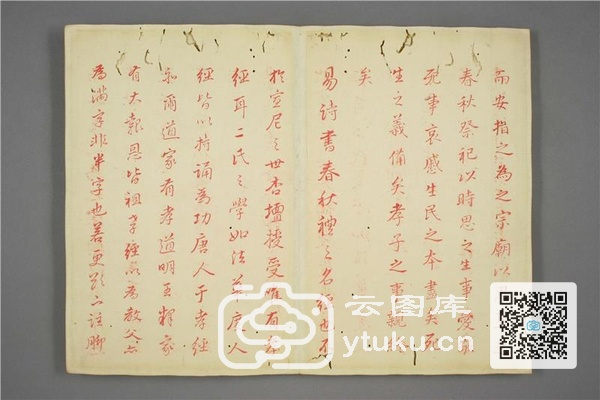 而安措之為之宗廟以
春秋祭祀以時思之生事愛
死事哀慼生民之本盡矣死
生之義備矣孝子之事親
矣
易詩書春秋禮之名經也不
於宣尼之世杏壇授受唯有本
經耳二氏之學如法華唐人
經皆以持誦為功唐人于孝經
亦爾道家有孝道明王釋家
有大報恩皆祖孝經以為教父六
為滿字非半字也善更顯六註腳
云图库
ytuku.cn